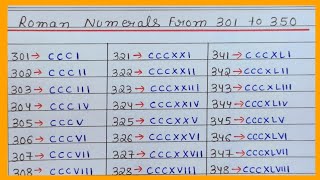 Roman Numerals From 301 to 350
301→ CCCI 321→ CCCXXI 341→ CCCXLI
302→ CCCII 322→ CCCXXII 342→CCCXLII
303→ CCCIII 323→ CCCXXIII 343→ CCCXLIII
304→ CCCIV 324→ CCCXXIV 344→CCCXLIV
305→ CCCV 325→ CCCXXV 345→ CCCXLV
306→ CCCVI 326→ CCCXXVI 346→CCCXLVI
307→ CCCVII 327→CCCXXVII 347→CCCXLVII
308→ CCCVIII 328→ CCCXXVIII 348→CCCXLVIII